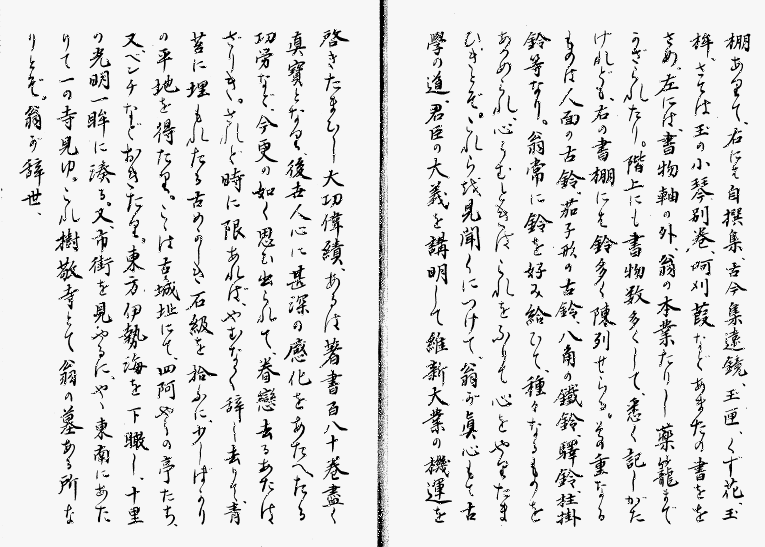 棚ありて、右にハ自撰集、古今集遠鏡、玉匣、くす花、玉
桙、さては玉の小琴別巻、呵刈葭などあまたの書をを
さめ、左には、書物軸の外、翁の本業たりし薬籠まで
かざられたり。階上にも書物数多くして悉く記しがた
けれども、右の書棚にハ鈴多く陳列せらる。首重なる
ものは人面の古鈴、茄子形の古鈴、八角の鐵鈴、驛鈴、柱掛
鈴等なり。翁常に鈴を好み給ひて、種々なるものを
あつめられ、心うむときはこれをふりて心をやりたま
ひきとぞ。これら越見聞くにつけて、翁が眞心もて古
學の道、君臣の大義を講明して維新大業の機運を
啓きたまひし大功偉績、あるは著書百八十巻盡く
眞寶となり、後古人心に甚深の感化をあたへたる
功勞など、今更の如く思ひ出られて、眷戀去るあたは
ざりき。されど時に限あれば、やむなく辞し去りて、青
苔に埋もれたる古めかしき石級を拾ふに、少しばかり
の平地を得たり。こは古城址にて、四阿やうの亭たち、
又ベンチなどおきたり。東方伊勢海を下瞰し、十里
の光明一眸に湊る。又、市街を見やるに、やゝ東南にあた
りて一の寺見ゆ。これ樹敬寺とて翁の墓ある所な
りとぞ。翁が辞世、